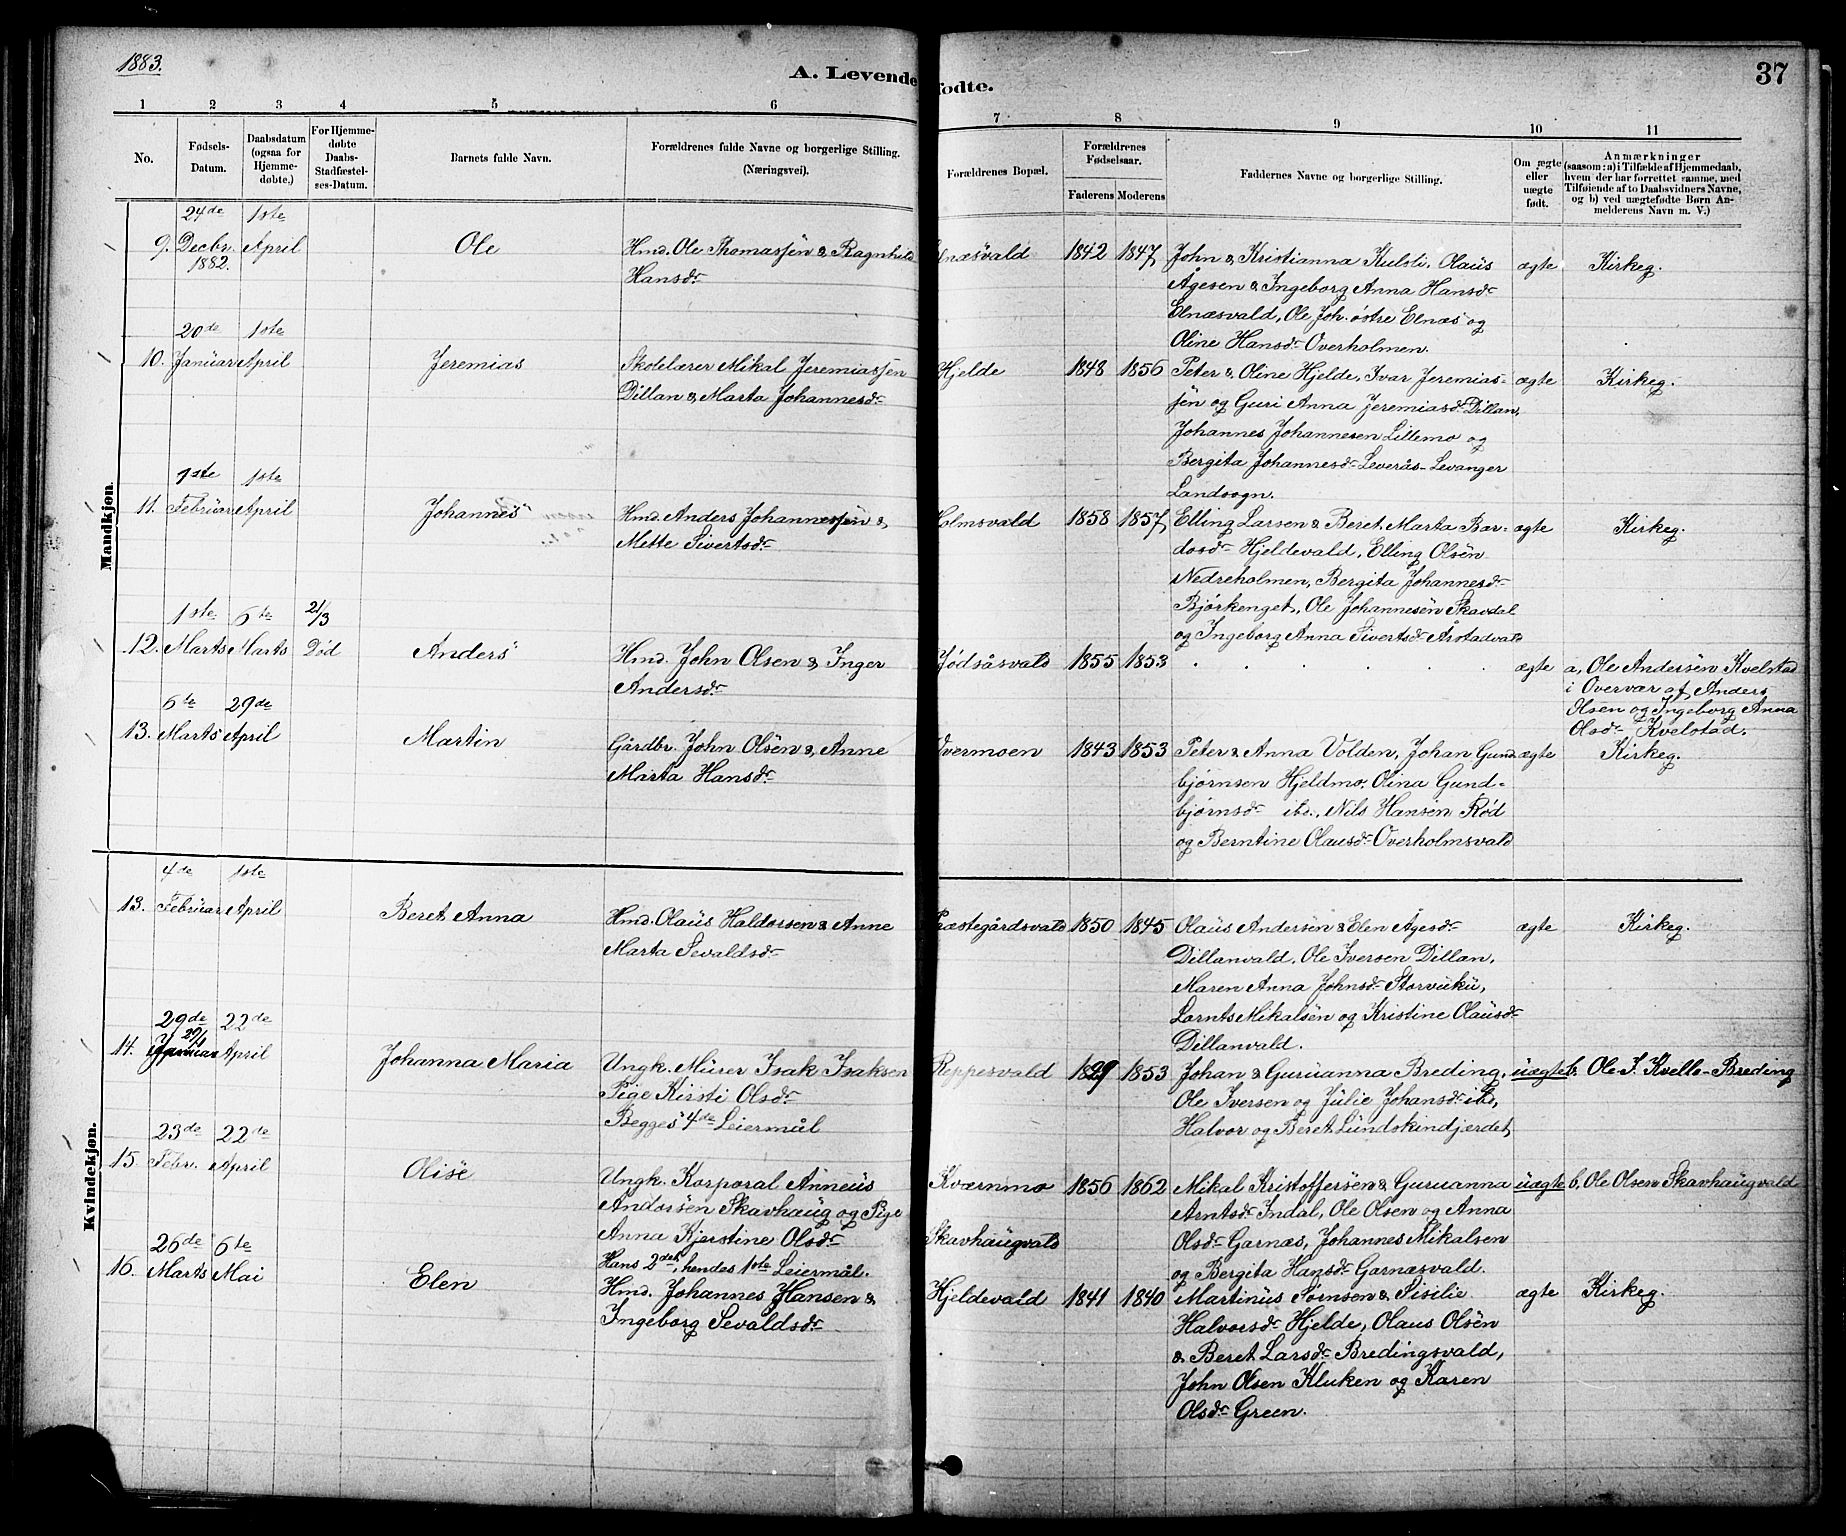 1883.
A. Levende
fødte.
37
1 2 3 4 5 6 7 8 9 10 11
No.
Fødsels-
Datum.
Daabsdatum
(ogsaa for
Hjemme-
døbte.)
For Hjemme-
døbte
Daabs-
Stadfæstel-
ses-Datum.
Barnets fulde Navn.
Forældrenes fulde Navne og borgerlige Stilling.
(Næringsvei).
Forældrenes Bopæl.
Forældrenes
Fødselsaar.
Faderens Moderens
Faddernes Navne og borgerlige Stilling.
Om ægte
eller
uægte
født.
Anmærkninger
(saasom: a) i Tilfælde af Hjemmedaab,
hvem der har forrettet samme, med
Tilføiende af to Daabsvidners Navne,
og b) ved uægtefødte Børn An-
melderens Navn m. V.)
Mandkjøn.
24de 1ste
9. Decbr. April Ole Hmd. Ole Thomassen & Ragnhild Elnæsvald 1842 1847 John & Kristianna Kulsli, Olaus ægte Kirkeg.
1882. Hansdr Ågesen & Ingeborg Anna Hansdr
Elnæsvald, Ole Joh. østre Elnæs og
Oline Hansdr Overholmen.
20de 1ste
10. Januar April Jeremias Skolelærer Mikal Jeremiassen Hjelde 1848 1856 Peter & Oline Hjelde, Ivar Jeremias- ægte Kirkeg.
Dillan & Marta Johannesdr sen og Guri Anna Jeremiasdr Dillan,
Johannes Johannesen Lillemo og
Bergita Johannesdr Leverås- Levanger
Landsogn.
1ste 1ste
11. Februar April Johannes Hmd. Anders Johannessen & Holmsvald 1858 1857 Elling Larsen & Beret Marta Bar- ægte Kirkeg.
Mette Sivertsdr dosdr Hjeldevald, Elling Olsen
Nedreholmen, Bergita Johannesdr
Bjørkenget, Ole Johannesen Skavdal
og Ingeborg Anna Sivertsdr Årstadvald
1ste 6te 21/3
12. Marts Marts Død Anders Hmd. John Olsen & Inger Jødsåsvald 1855 1853 . . . . . ægte a, Ole Andersen Kvelstad
Andersdr i Overvær af Anders
Olsen og Ingeborg Anna
Olsdr Kvelstad.
6te 29de
13. Marts April Martin Gårdbr. John Olsen & Anne Overmoen 1843 1853 Peter & Anna Volden, Johan Gund- ægte Kirkeg.
Marta Hansdr bjørnsen Hjeldmo, Olina Gund-
bjørnsdr ibd., Nils Hansen Rød
og Berntine Olausdr Overholmsvald
Kvindekjøn.
4de 1ste
13. Februar April Beret Anna Hmd. Olaus Haldorsen & Anne Præstegårdsvald 1850 1845 Olaus Andersen & Elen Ågesdr ægte Kirkeg.
Marta Sevaldsdr Dillanvald, Ole Iversen Dillan,
Maren Anna Johnsdr Storvuku,
Lornts Mikalsen og Kristine Olausdr
Dillanvald.
29de 22de
29/1
14. Januar April Johanna Maria Ungk. Murer Isak Isaksen Reppesvald 1829 1853 Johan & Guruanna Breding, uægte b, Ole J. Kvello- Breding
Pige Kirsti Olsdr Ole Iversen og Julie Johansdr ibd,
Begges 4de Leiermål Halvor og Beret Lundskindjerdet,
23de 22de
15. Febr. April Olise Ungk. Korporal Anneus Kværnmo 1856 1862 Mikal Kristoffersen & Guruanna uægte b, Ole Olsen Skavhaugvald
Andorsen Skavhaug og Pige Arntsdr Indal, Ole Olsen og Anna
Anna Kjerstine Olsdr Skavhaugvald Olsdr Garnæs, Johannes Mikalsen
Hans 2det, hendes 1ste Leiermål. og Bergita Hansdr Garnæsvald.
26de 6te
16. Marts Mai Elen Hmd. Johannes Hansen & Hjeldevald 1841 1840 Martinus Sørnsen & Sisilie ægte Kirkeg.
Ingeborg Sevaldsdr Halvorsdr Hjelde, Olaus Olsen
& Beret Larsdr Bredingsvald,
John Olsen Kluken og Karen
Olsdr Green.